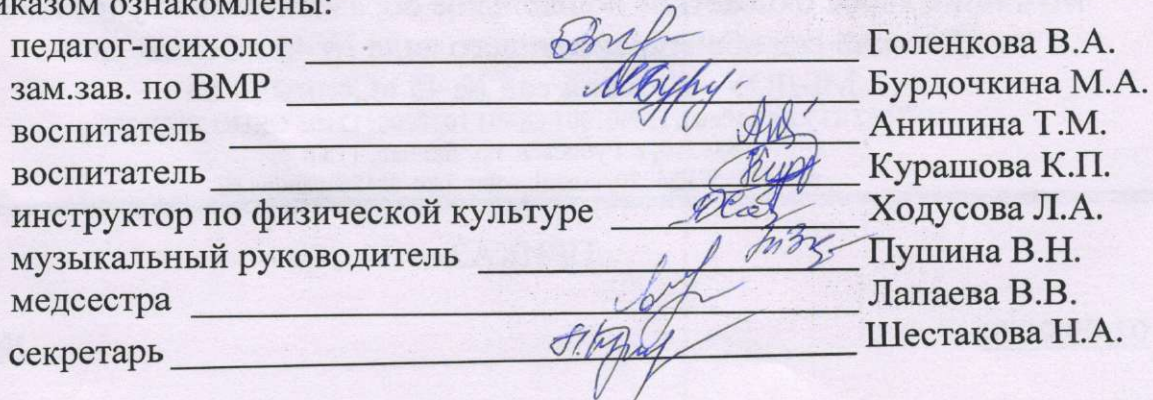 иказом ознакомлены:
педагог-психолог Голенкова В.А.
зам.зав. по ВМР Бурдочкина М.А.
воспитатель Анишина Т.М.
воспитатель Курашова К.П.
инструктор по физической культуре Ходусова Л.А.
музыкальный руководитель Пушина В.Н.
медсестра Лапаева В.В.
секретарь Шестакова Н.А.